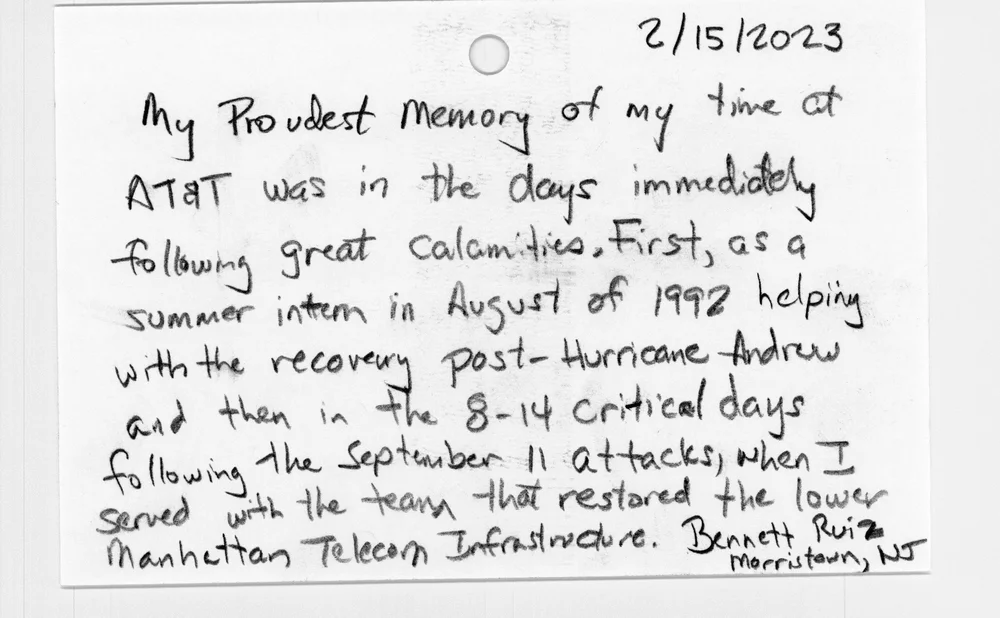 2/15/2023
My Proudest Memory of my time at
AT&T was in the days immediately
following great calamities. First, as a
summer intern in August of 1992 helping
with the recovery post-Hurricane Andrew
and then in the 8-14 critical days
following the September 11 attacks, when I
served with the team that restored the lower
Manhattan Telecom Infrastructure. Bennett Ruiz
Morristown, NJ